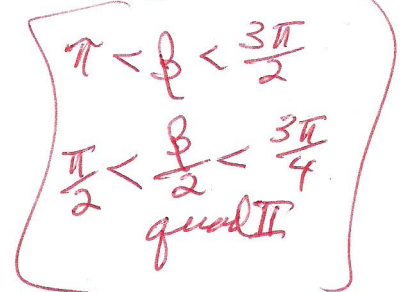 π < β < 3π/2
π/2 < β/2 < 3π/4
quad II